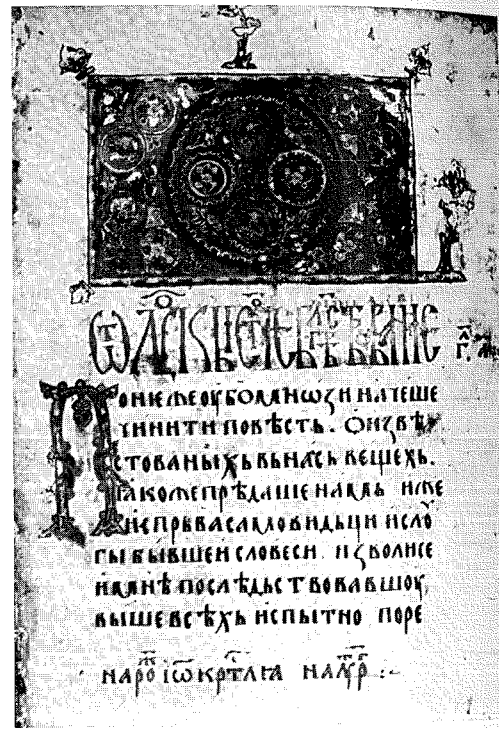 Понѥже оубо мнѡзи начеше
чинити повѣсть. О извѣ
стованыхъ вь нась вещехь.
ꙗкоже прѣдаше намь иже
испрьва самовидьци и слоу
гы бывшеи словеси. изволисе
и мнѣ послѣдьствовавшоу
выше всѣхь испытно поре
на роⷤ іѡ крⷭтлꙗ на